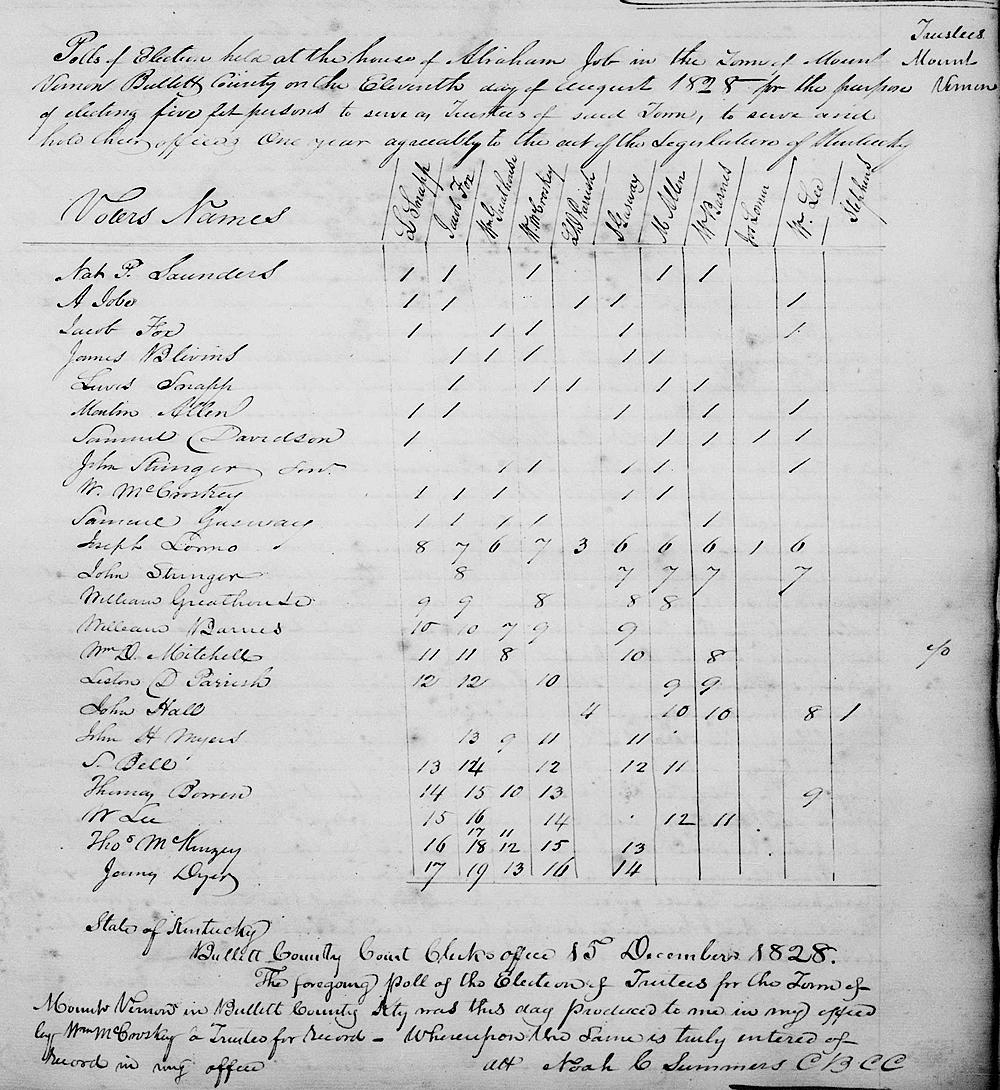 Trustees
Mount
Vernon
Polls of Election held at the house of Abraham Job in the Town of Mount
Vernon Bullett County on the Eleventh day of August 1828 for the purpose
of electing five fit persons to serve as Trustees of said Town, to serve and
hold their offices One year agreeably to the act of the Legislature of Kentucky
Voters Names L Snapp Jacob Fox Wm Greathouse W. McCroskey LD Parrish S Gasway M Allen W Barnes Jos Lomer Wm Lee Stephens
Nat P. Saunders 1 1 1 1 1
A Jobe 1 1 1 1 1
Jacob Fox 1 1 1 1 1
James Blivins 1 1 1 1 1
Lewis Snapp 1 1 1 1 1
Allen 1 1 1 1 1
Samuel Davidson 1 1 1 1 1
John Stringer Senr 1 1 1 1 1
W. McCroskey 1 1 1 1 1
Samuel Gasway 1 1 1 1 1
Joseph 8 7 6 7 3 6 6 6 1 6
John Stringer 8 7 7 7 7
William Greathouse 9 9 8 8 8
William Barnes 10 10 7 9 9
Wm D. Mitchell 11 11 8 10 8
Liston D Parrish 12 12 10 9 9
John Hall 4 10 10 8 1
John H Myers 13 9 11 11
S. Bell 13 14 12 12 11
Thomas Borren 14 15 10 13 9
W Lee 15 16 14 12 11
17 11
Thos McKinzey 16 18 12 15 13
Dyer 17 19 13 16 14
State of Kentucky
Bullett County Court Clerks office 15 December 1828.
The foregoing poll of the Election of Trustees for the Town of
Mount Vernon in Bullett County Kty was this day produced to me in my office
by Wm McCroskey a Trustee for Record - Whereupon the Same is truly entered of
Record in my office att Noah C Summers C B C C